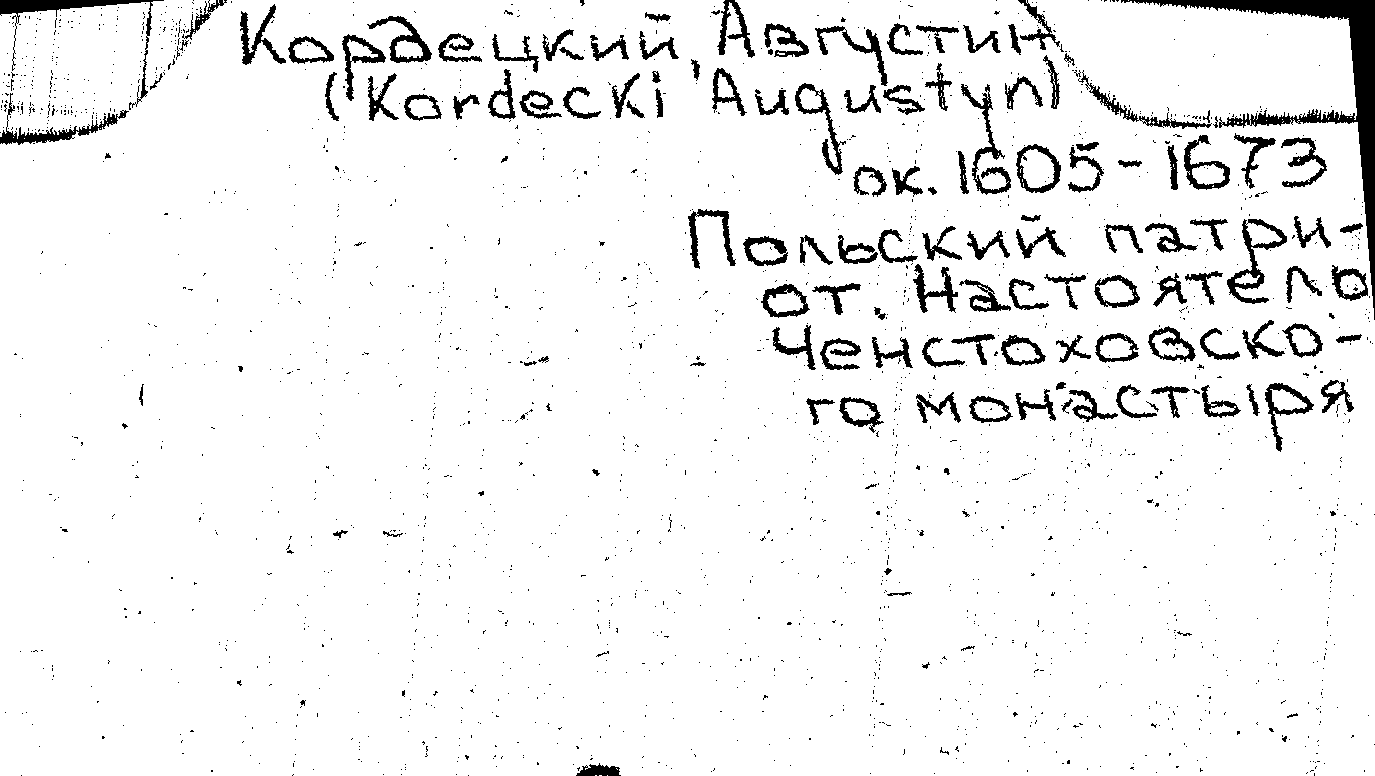 Кордецкий, Августин
(Kordecki Augustyn)
ок. 1605-1673
Польский патри-
от. Настоятель
Ченстоховско-
го монастыря